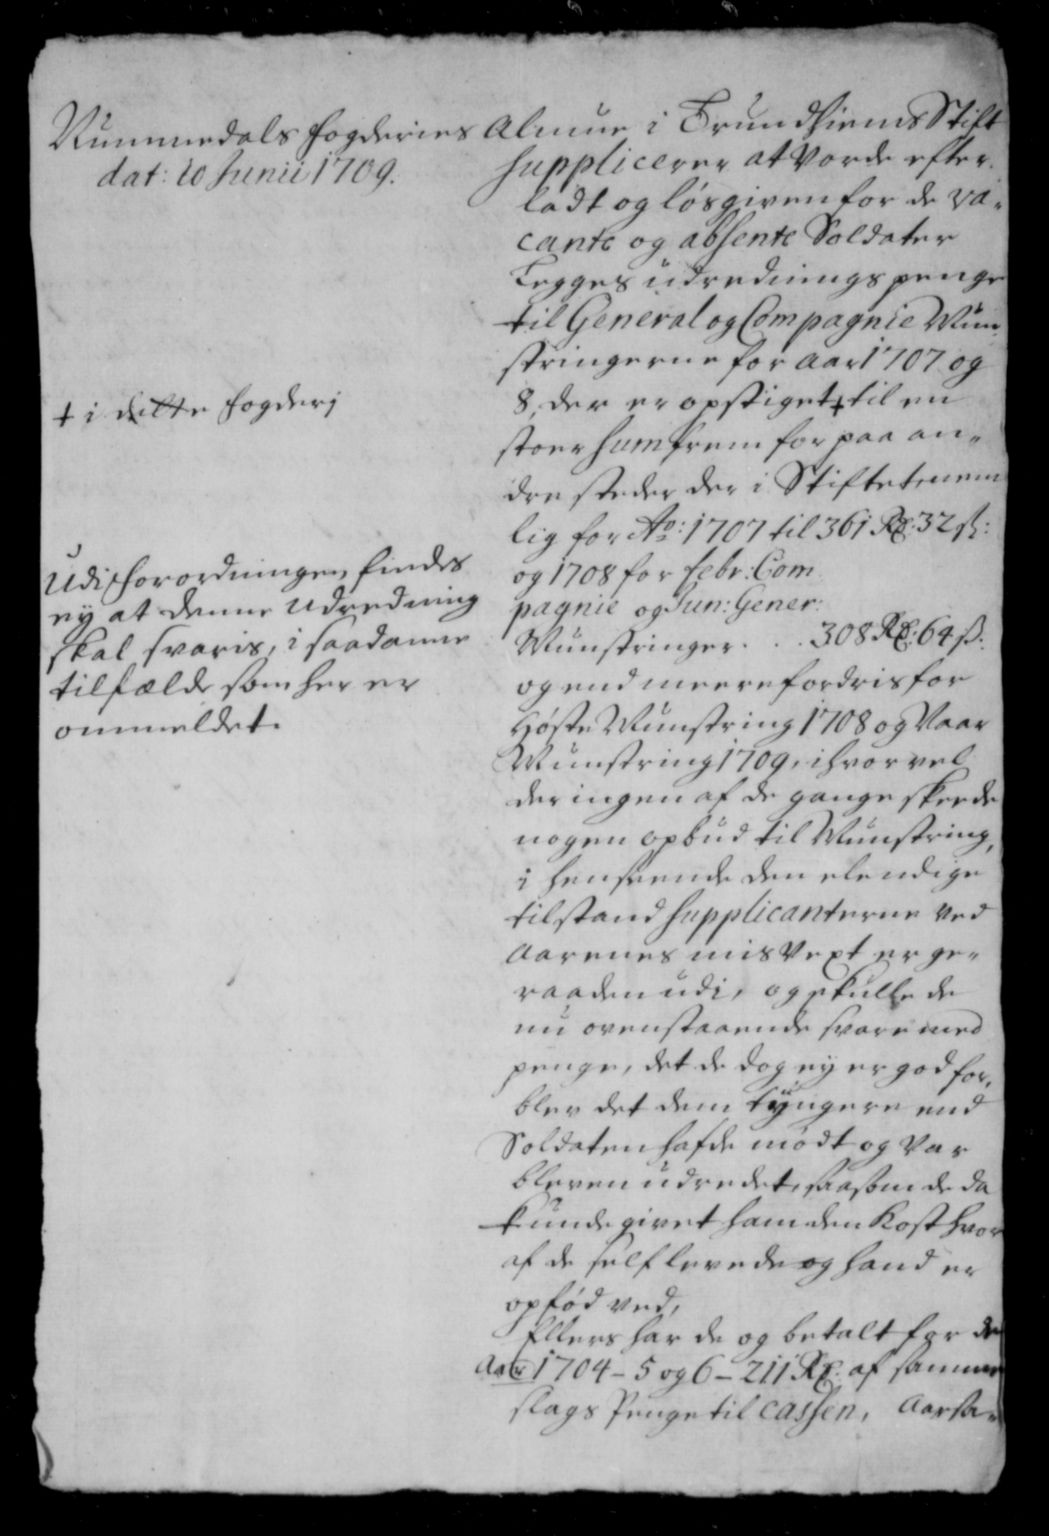 Nummedals fogderies Almue i Trundhiems Stift
dat: 10 Junii 1709.
supplicerer at vorde efter-
ladt og løsgiven for de va-
cante og absente Soldater
Legges udrednings penge
til General og Compagnie Mun-
stringerne for aar 1707 og
8, der er opstiget + til en
+ i dette fogderj
stoer sum frem for paa an-
dre steder der i Stiftet, nem
lig for Ao: 1707 til 361 Rd: 32 s:
og 1708 for febr: Com
pagnie og Jun: Gener:
Munstringer. . . 308 Rd: 64 s:
og end meere fordris for
Høste Munstring 1708 og Vaar
Munstring 1709, ihvorvel
der ingen af de gange skeede
nogen opbud til Munstring,
i henseende den elendige
tilstand supplicanterne ved
Aarenes misvext er ge-
raaden udi, og skulle de
nu ovenstaaende svare med
penge, det de dog ey er god for,
blev det dem tyngere end
Soldaten hafde mødt og var
bleven udredet, saasom de da
kunde givet ham den Kost hvor
af de self levede og hand er
opfød ved,
Ellers har de og betalt for de
Aar 1704 - 5 og 6 - 211 Rd: af samme
slags Penge til Cassen, Aarsa-
Udi forordningen findes
ey at denne udredning
skal svaris, i saadanne
tilfælde som her er
ommeldet.